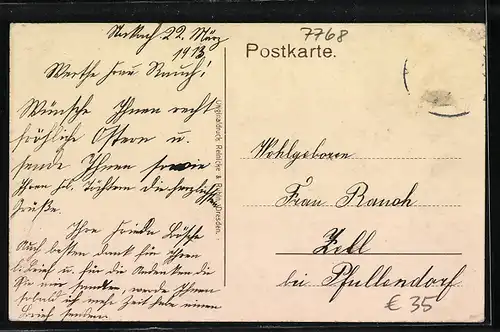 Stockach 22. März
1913
Werthe Frau Rauch!
Wünsche Ihnen recht
fröhliche Ostern u.
sende Ihnen sowie
Ihren fr. Töchtern die herzlichsten
Grüße.
Ihre Frieda
Auch besten Dank für Ihren
l. Brief u. für die Andenken die
Sie mir sandten, werde Ihnen
sobald ich mehr Zeit habe einen
Brief senden.
Originaldruck Reinicke & Rubin, Dresden.
7768
Postkarte.
Wohlgeboren
Frau Rauch
Zell
bei Pfullendorf
€ 35